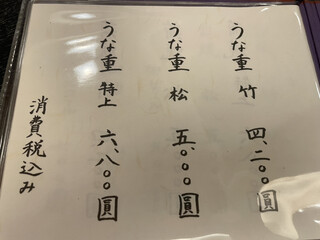 うな重 竹 四、二〇〇圓
うな重 松 五、〇〇〇圓
うな重 特上 六、八〇〇圓
消費税込み